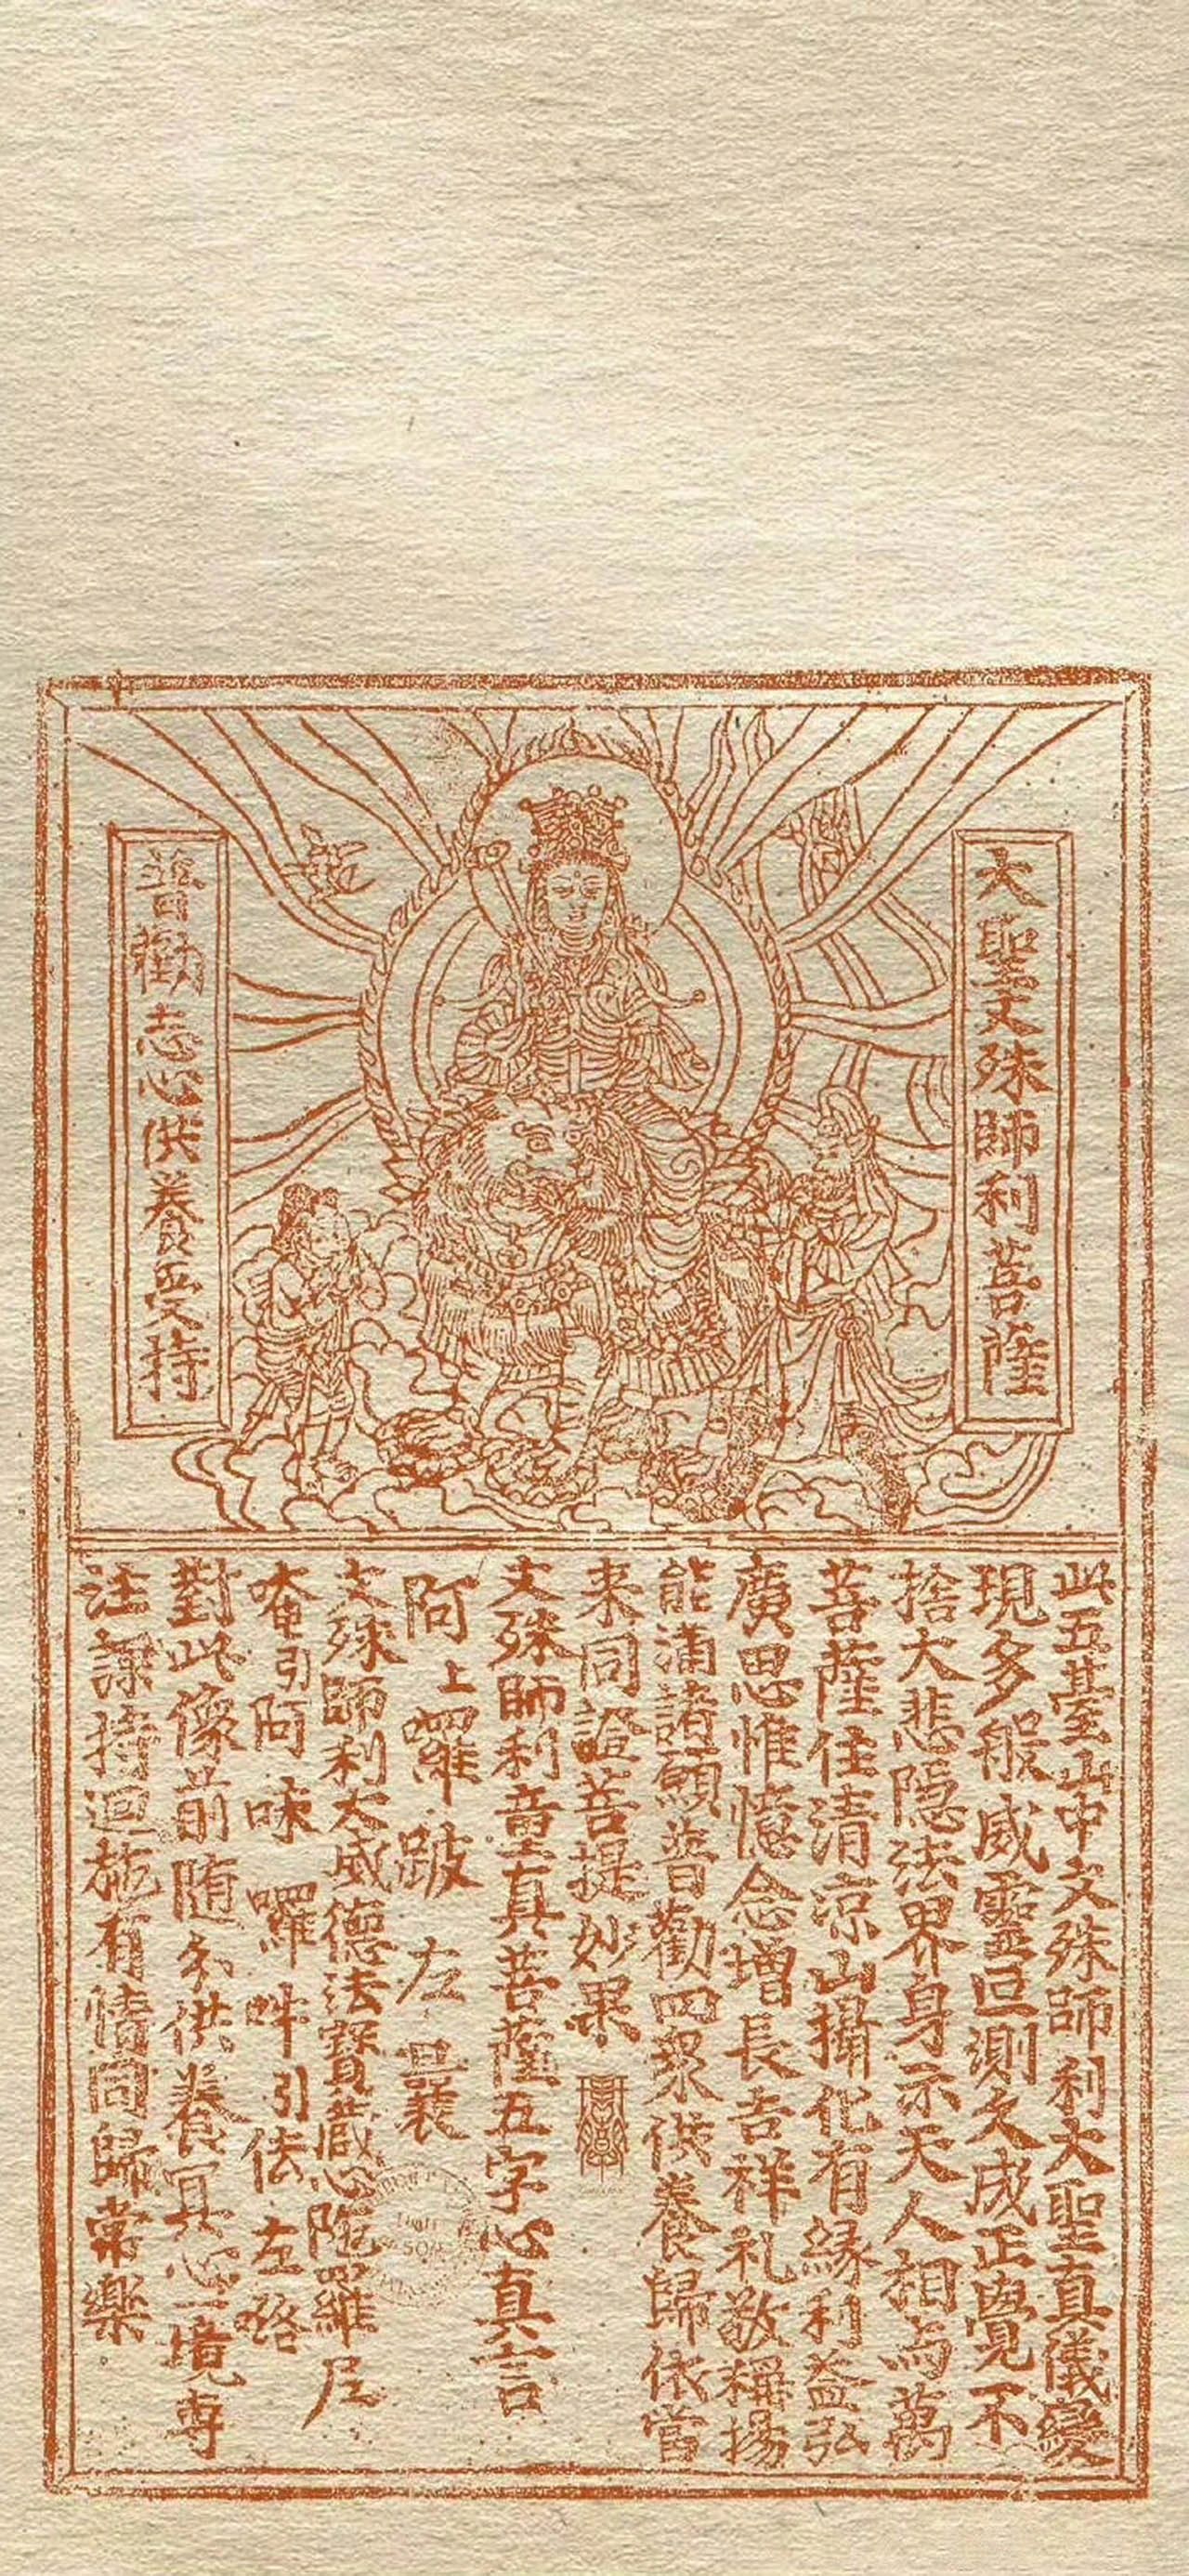 大聖文殊師利菩薩
普勸志心供養受持
此五臺山中文殊師利大聖真儀變
現多般威靈叵測久成正覺不
捨大悲隱法界身示天人相与萬
菩薩住清涼山攝化有緣利益弘
廣思惟憶念增長吉祥礼敬稱揚
能滿諸願普勸四衆供養歸依當
来同證菩提妙果
文殊師利童真菩薩五字心真言
阿上囉跛左曩
文殊師利大威德法寶藏心陁羅尼
唵引阿味囉吽引佉左略
對此像前随分供養冥心一境専
注課持迴施有情同歸常樂